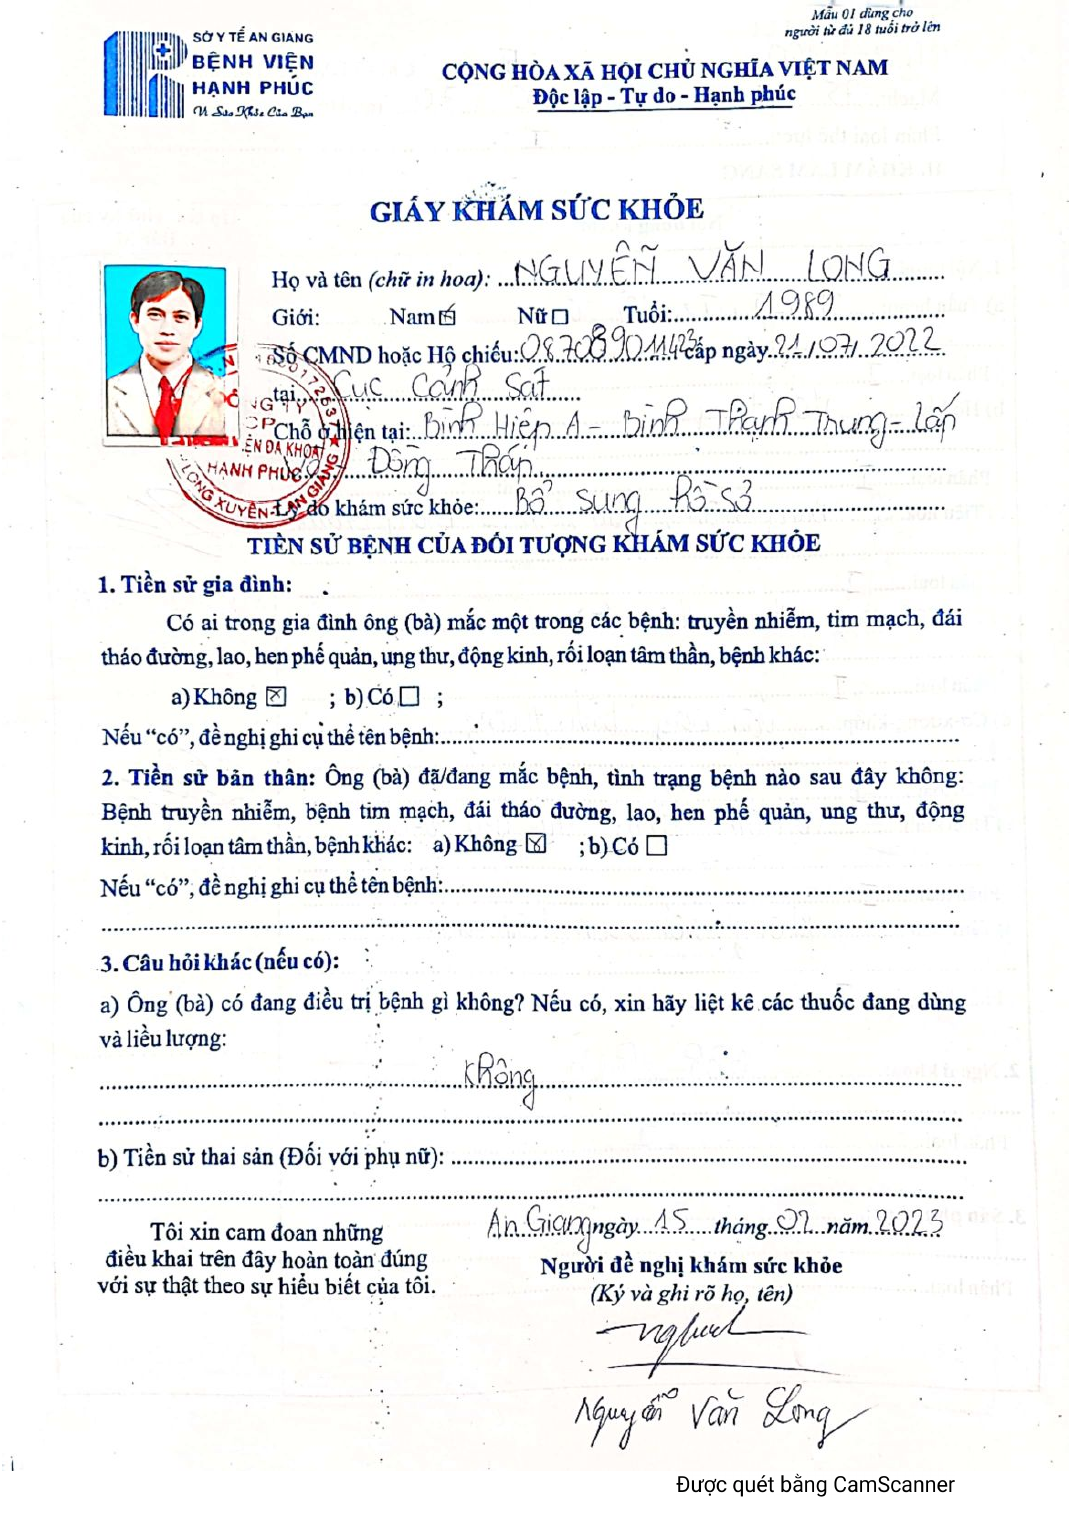 Mẫu 01 dùng cho
người từ đủ 18 tuổi trở lên
SỞ Y TẾ AN GIANG
BỆNH VIỆN
HẠNH PHÚC
Vì Sức Khỏe Của Bạn
CỘNG HÒA XÃ HỘI CHỦ NGHĨA VIỆT NAM
Độc lập - Tự do - Hạnh phúc
GIẤY KHÁM SỨC KHỎE
Họ và tên (chữ in hoa): NGUYỄN VĂN LONG
Giới: Nam ☑ Nữ ☐ Tuổi: 1989
Số CMND hoặc Hộ chiếu: 087089011423 cấp ngày 21/07/2022
tại Cục Cảnh Sát
Chỗ ở hiện tại: Bình Hiệp A - Bình Thạnh Trung - Lấp
Vò - Đồng Tháp
Lý do khám sức khỏe: Bổ sung hồ sơ
CÔNG TY
CP
BỆNH VIỆN ĐA KHOA
HẠNH PHÚC
LONG XUYÊN - AN GIANG
TIỀN SỬ BỆNH CỦA ĐỐI TƯỢNG KHÁM SỨC KHỎE
1. Tiền sử gia đình:
Có ai trong gia đình ông (bà) mắc một trong các bệnh: truyền nhiễm, tim mạch, đái
tháo đường, lao, hen phế quản, ung thư, động kinh, rối loạn tâm thần, bệnh khác:
a) Không ☒ ; b) Có ☐ ;
Nếu “có”, đề nghị ghi cụ thể tên bệnh:
2. Tiền sử bản thân: Ông (bà) đã/đang mắc bệnh, tình trạng bệnh nào sau đây không:
Bệnh truyền nhiễm, bệnh tim mạch, đái tháo đường, lao, hen phế quản, ung thư, động
kinh, rối loạn tâm thần, bệnh khác: a) Không ☒ ; b) Có ☐
Nếu “có”, đề nghị ghi cụ thể tên bệnh:
3. Câu hỏi khác (nếu có):
a) Ông (bà) có đang điều trị bệnh gì không? Nếu có, xin hãy liệt kê các thuốc đang dùng
và liều lượng:
Không
b) Tiền sử thai sản (Đối với phụ nữ):
Tôi xin cam đoan những
điều khai trên đây hoàn toàn đúng
với sự thật theo sự hiểu biết của tôi.
An Giang ngày 15 tháng 02 năm 2023
Người đề nghị khám sức khỏe
(Ký và ghi rõ họ, tên)
Nguyễn Văn Long
Được quét bằng CamScanner